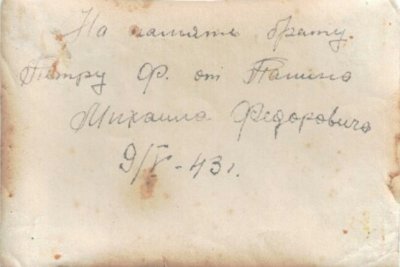 На память брату.
Петру Ф. от Панина
Михаила Федоровича
9/V-43г.